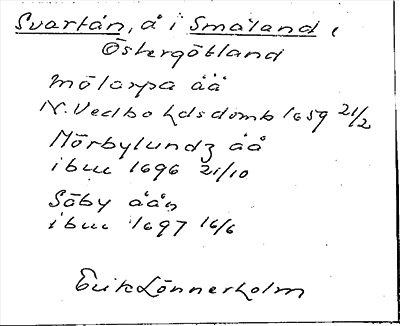 Svartån, å i Småland,
Östergötland
Mölarpa åå
N. Vedbo hdsdomb 1659 21/2
Mörbylundz åå
ibm 1696 21/10
Säby åån
ibm 1697 16/6
Erik Lönnerholm